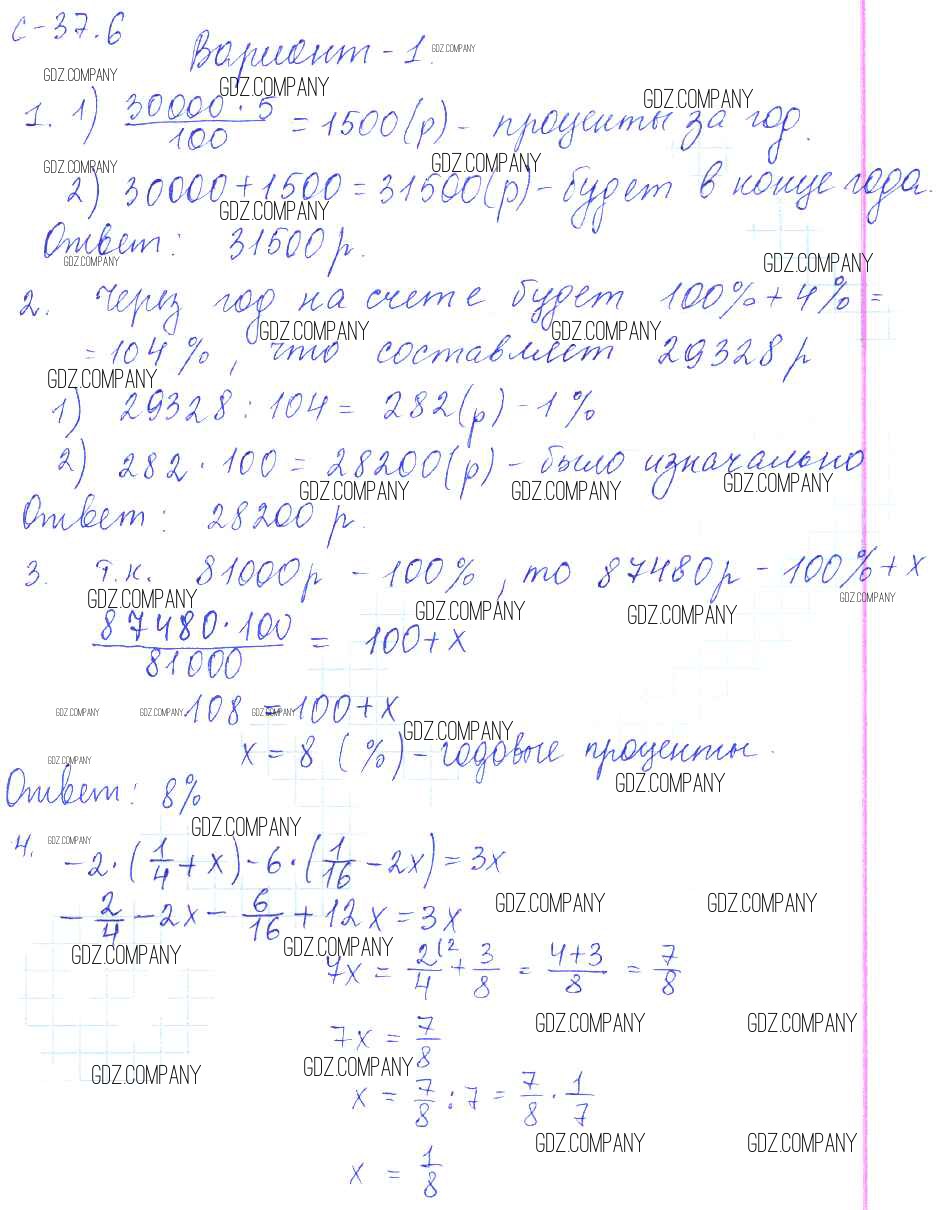 С-37.6
Вариант-1.
1. 1) 30000·5/100 = 1500(р) - проценты за год.
2) 30000+1500=31500(р)-будет в конце года.
Ответ: 31500 р.
2. Через год на счете будет 100%+4%=
=104%, что составляет 29328 р
1) 29328:104= 282(р)-1%
2) 282·100=28200(р)-было изначально
Ответ: 28200 р.
3. т.к. 81000р -100%, то 87480р-100%+x
87480·100/81000 = 100+x
108=100+x
x=8 (%)-годовые проценты.
Ответ: 8%
4. -2·(1/4+x)-6·(1/16-2x)=3x
-2/4-2x-6/16+12x=3x
7x = 2/4(2 + 3/8 = 4+3/8 = 7/8
7x = 7/8
x = 7/8:7= 7/8·1/7
x = 1/8
GDZ.COMPANY